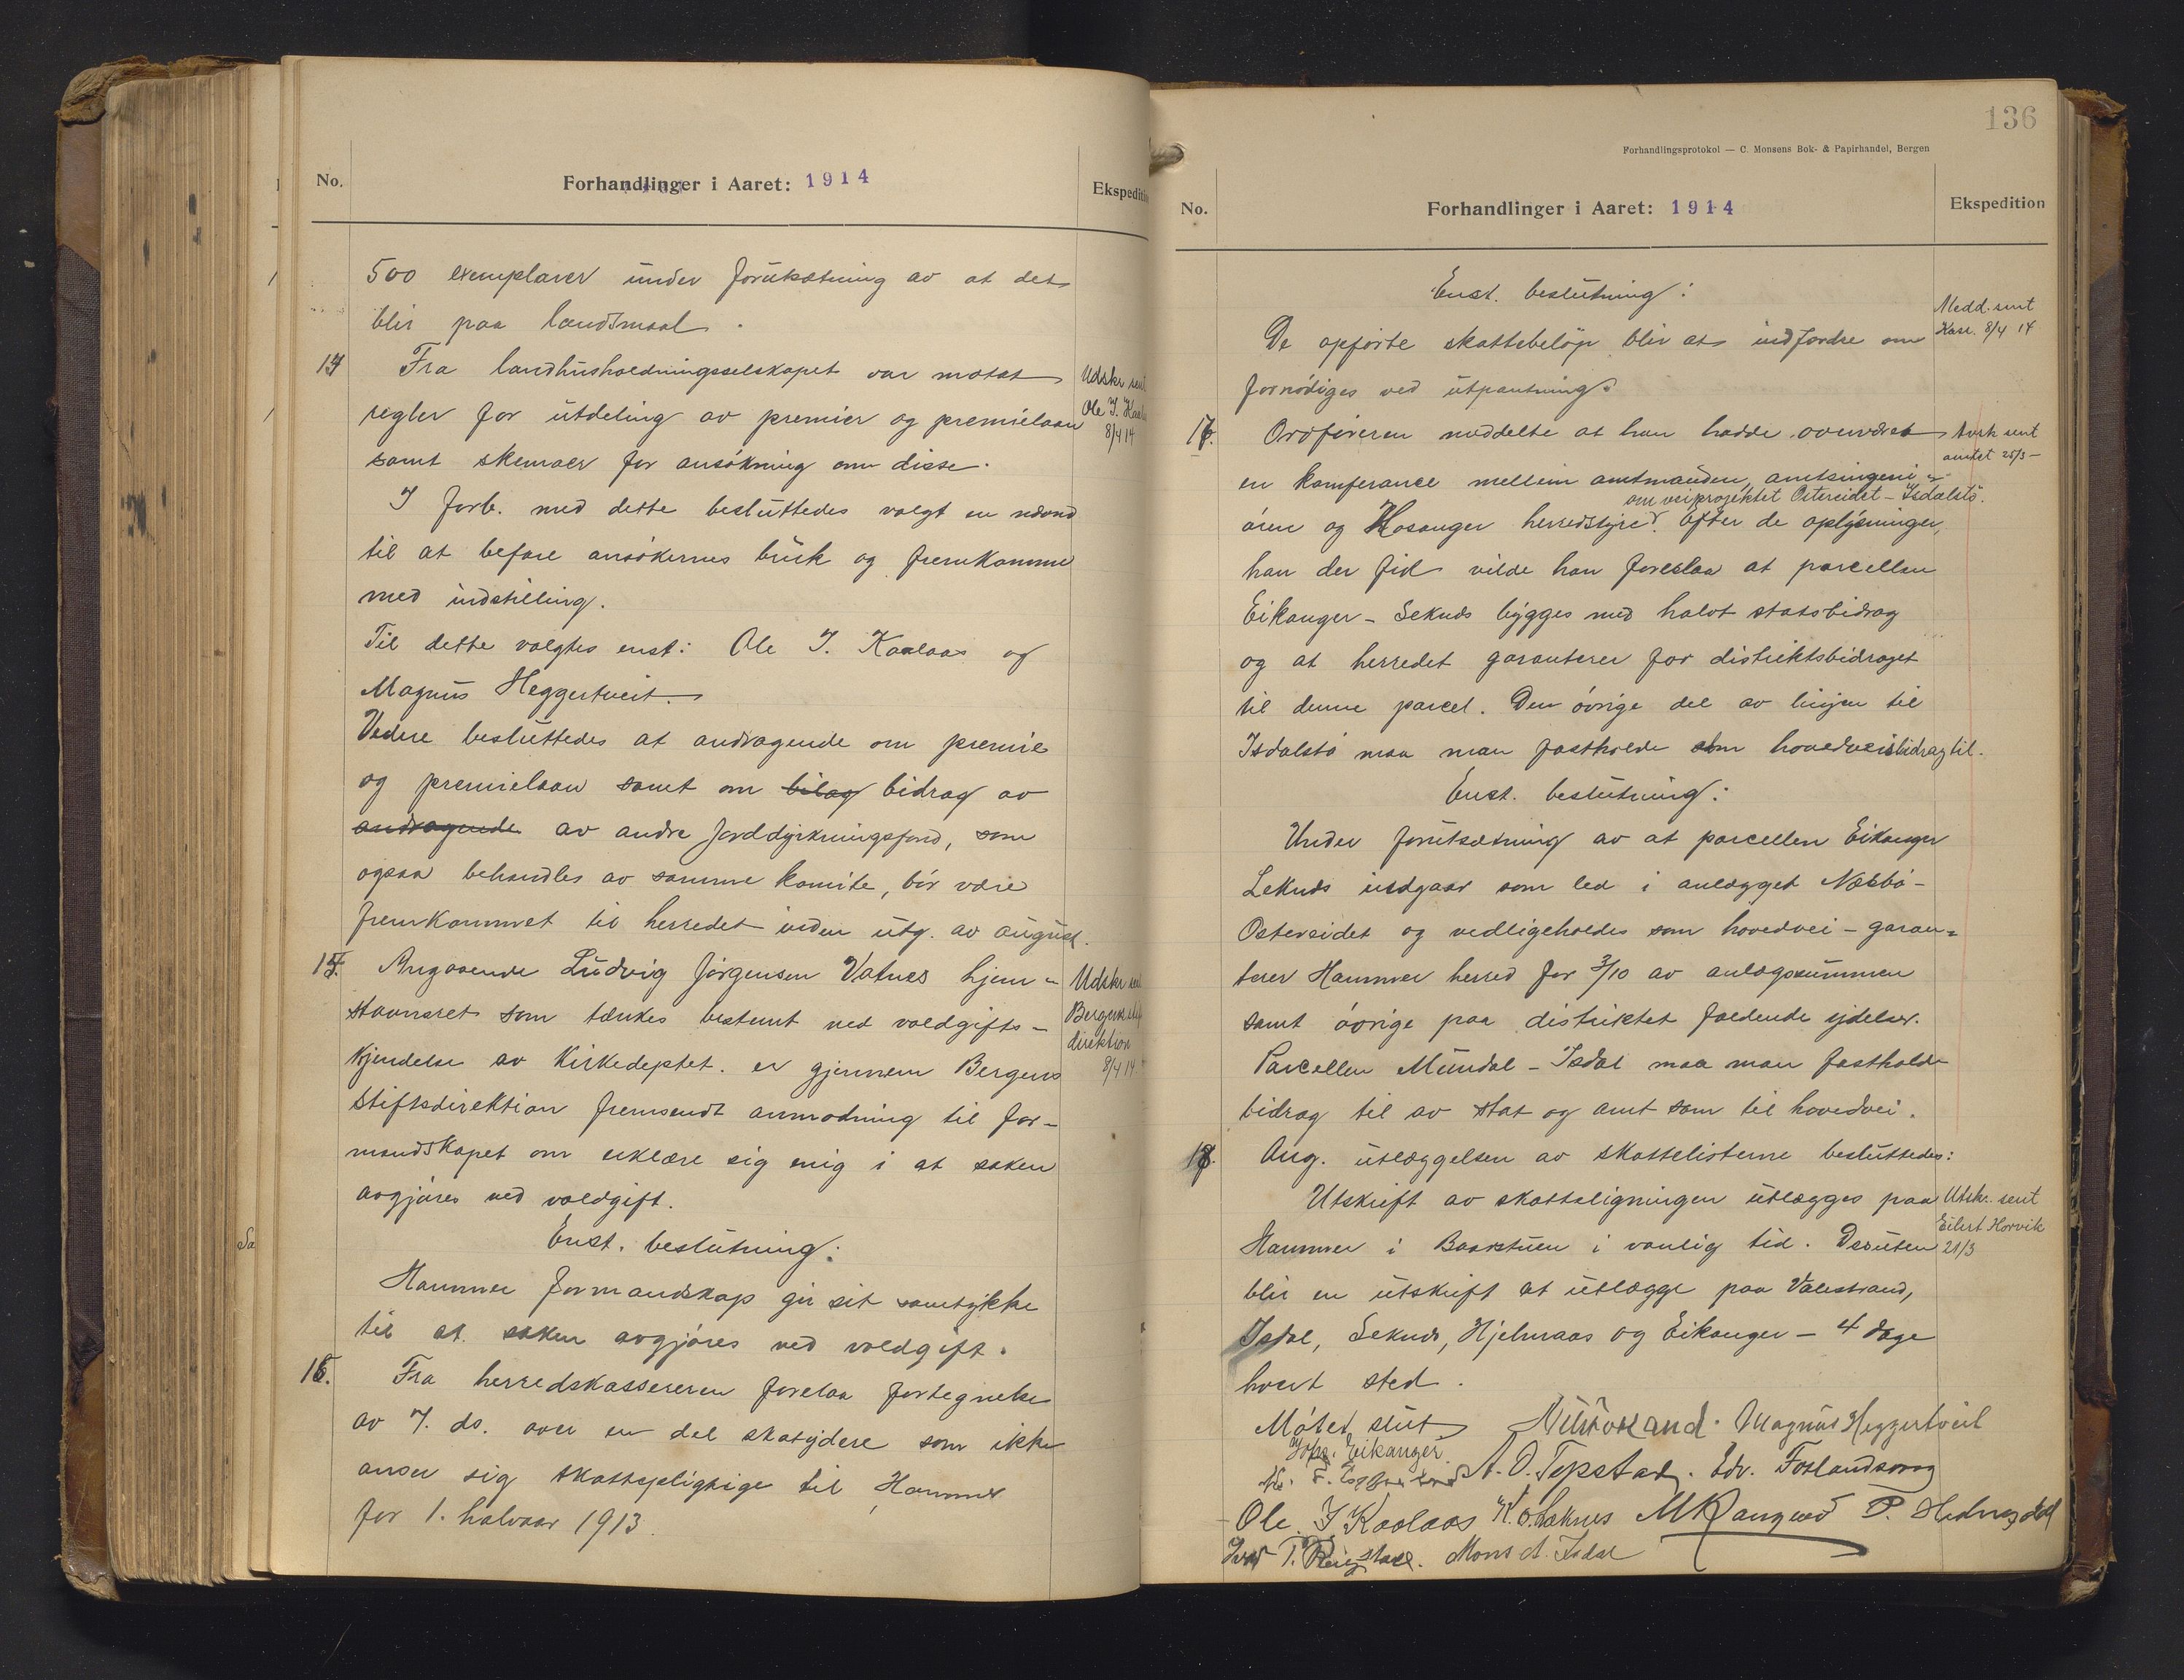 No.
Forhandlinger i Aaret: 1914
500 exemplarer under forutsætning av at det
blir paa landsmaal.
14 Fra landhusholdningsselskapet var motat
regler for utdeling av premier og premielaan
samt skemaer for ansøkning om disse.
I forb. med dette besluttedes valgt en nævnd
til at befare ansøkernes bruk og fremkomme
med indstilling.
Til dette valgtes enst: Ole J. Kaalaas og
Magnus Heggertveit.
Videre besluttedes at andragende om premie
og premielaan samt om bilag bidrag av
andragende av andre jorddyrkningsfond, som
ogsaa behandles av samme komite, bør være
fremkommet til herredet inden utg. av august.
Udskr sent
Ole J. Kaalaas
8/4 14
15. Angaaende Ludvig Jørgensen Vatnes hjem-
stavnsret som tænkes bestemt ved voldgifts-
kjendelse av Kirkedeptet. er gjennem Bergens
stiftsdirektion fremsendt anmodning til for-
mandskapet om erklære sig enig i at saken
avgjøres ved voldgift.
Enst. beslutning:
Hammer formandskap gir sit samtykke
til at saken avgjøres ved voldgift.
Udskr sent
Bergens stift
direktion
8/4 14.
16. Fra herredskassereren forelaa fortegnelse
av 7. ds. over en del skatydere som ikke
anser sig skattepligtige til Hammer
for 1. halvaar 1913.
136
Forhandlingsprotokol — C. Monsens Bok- & Papirhandel, Bergen
No.
Forhandlinger i Aaret: 1914
Ekspedition
Enst. beslutning:
De opførte skattebeløp blir at indfordre om
fornødiges ved utpantning.
Medd. sent
Kass. 8/4 14
17. Ordføreren meddelte at han hadde overværet
en konferance mellem amtmanden, amtsingeni-
om veiprojektet Ostereidet - Isdalstø.
øren og Hosanger herredstyre. Efter de oplysninger,
han der fik vilde han foreslaa at parcellen
Eikanger - Leknes bygges med halvt statsbidrag
og at herredet garanterer for distriktsbidraget
til denne parcel. Den øvrige del av linjen til
Isdalstø maa man fastholde som hovedveisbidrag til.
Enst. beslutning:
Under forutsætning av at parcellen Eikanger
Leknes indgaar som led i anlægget Næsbø-
Ostereidet og vedligeholdes som hovedvei - garan-
terer Hammer herred for 3/10 av anlægssummen
samt øvrige paa distriktet faldende ydelser.
Parcellen Mundal - Isdal maa man fastholde
bidrag til av stat og amt som til hovedvei.
sent
amtet 25/3-
18. Ang. utlæggelsen av skattelisterne besluttedes:
Utskrift av skatteligningen utlægges paa
Hammer i Baarstuen i vanlig tid. Desuten
blir en utskrift at utlægge paa Valestrand,
Isdal, Leknes, Hjelmaas og Eikanger - 4 dage
hvert sted.
Utskr. sent
Eilert Horvik
21/3
Møtet slut
Magnus Heggertveit
Johs. Eikanger
A. O. Tepstad. Edv. Foslandsvaag
Ole J Kaalaas K. O. Leknes M Rangnød P. Hednesdal
Ivar T. Reigstad. Mons A. Isdal